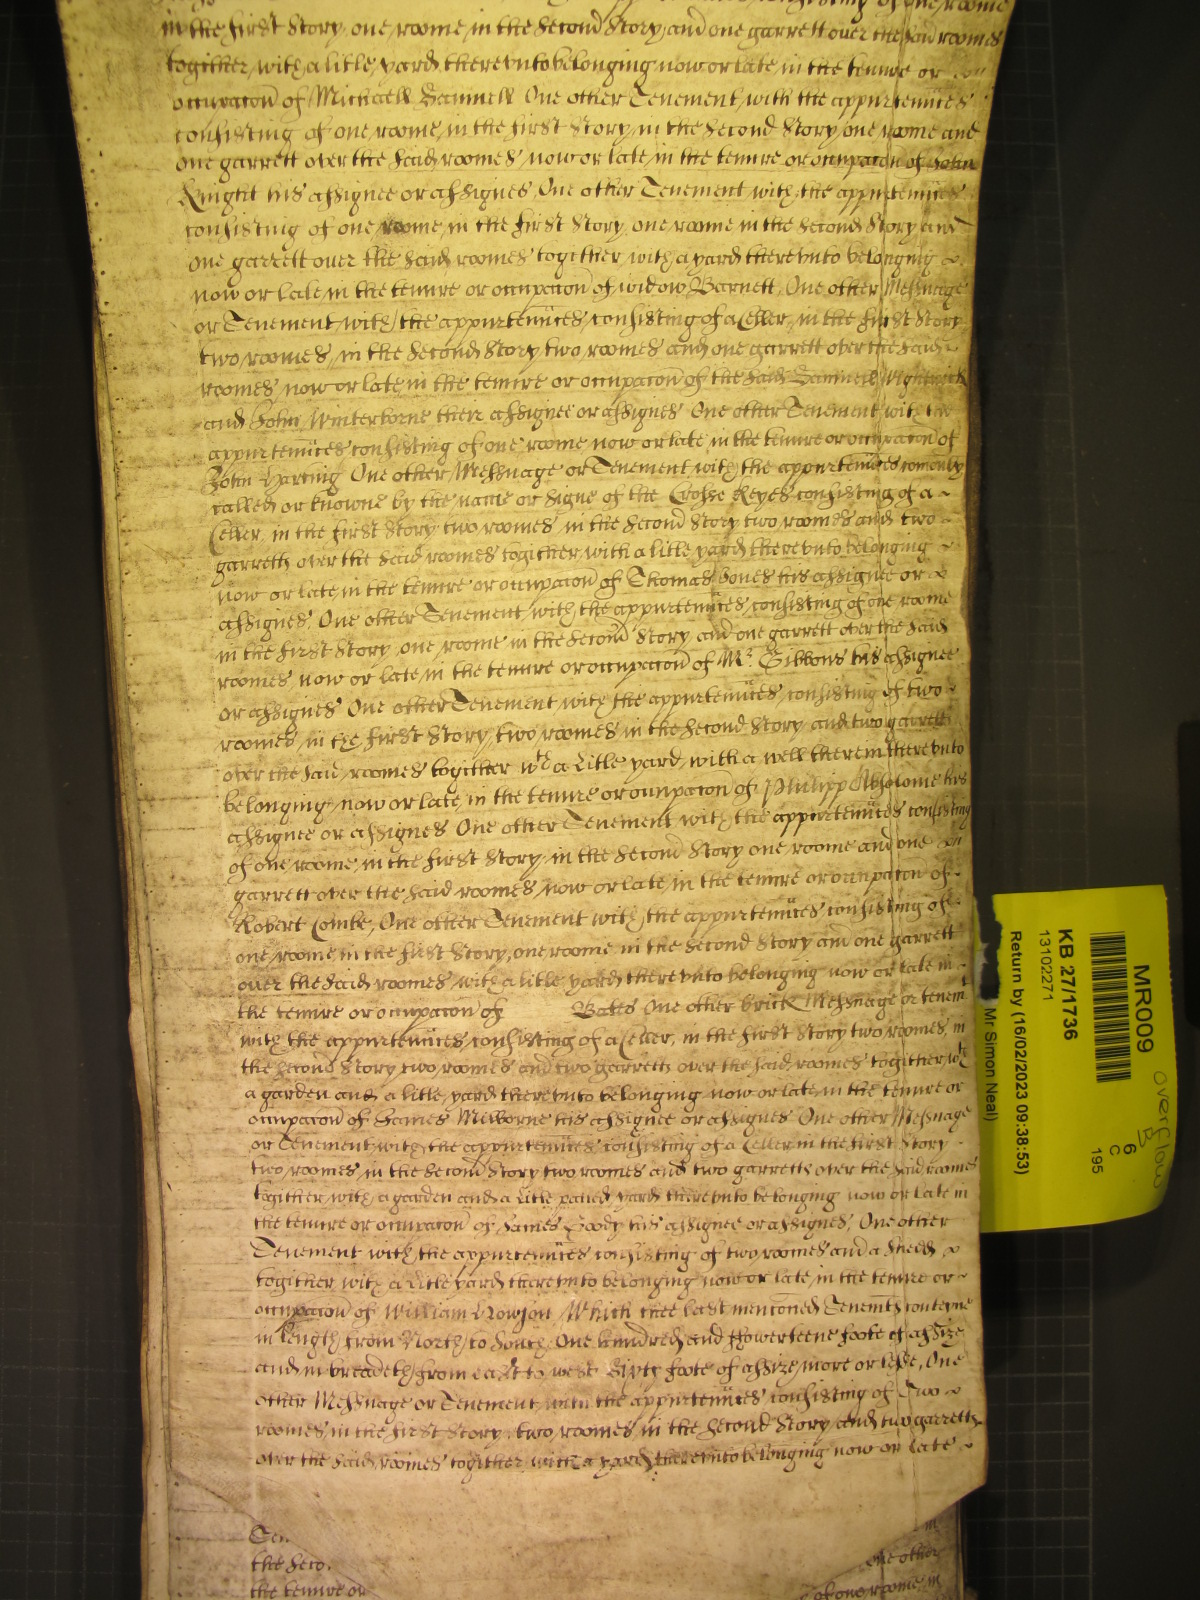 consisting of one roome
in the first Story, one roome in the Second Story, and one garrett over the said roomes
together with a litle yard therevnto belonging now or late in the tenure or
occupacon of Michaell Sannell One other Tenement with the appurtennces
consisting of one roome in the first Story, in the Second Story one roome and
one garrett over the said roomes now or late in the tenure or occupacon of John
Knight his assignee or assignes One other Tenement with the appurtennces
consisting of one roome in the first Story one roome in the second Story and
one garrett over the said roomes together with a yard therevnto belonging
now or late in the tenure or occupacon of widow Barnett One other Messuage
or Tenement with the appurtennces consisting of a Celler, in the first Story
two roomes, in the Second Story two roomes and one garrett over the said
roomes now or late in the tenure or occupacon of the said Samuell Wightwick
and John Winterborne their assignee or assignes One other Tenement with the
appurtennces consisting of one roome now or late in the tenure or occupacon of
John One other Messuage or Tenement with the appurtennces comonly
called or knowne by the name or Signe of the Crosse Keyes consisting of a
Celler, in the first Story two roomes in the Second Story two roomes and two
garretts over the said roomes together with a litle yard therevnto belonging
now or late in the tenure or occupacon of Thomas Jones his assignee or
assignes, One other Tenement with the appurtennces consisting of one roome
in the first Story, one roome in the Second Story and one garrett over the said
roomes now or late in the tenure or occupacon of Mr. Gibbons his assignee
or assignes One other Tenement with the appurtennces consisting of two
roomes in the first Story, two roomes in the second Story and two garretts
over the said roomes together wth a litle yard with a well therein therevnto
belonging now or late in the tenure or occupacon of Philipp Absolome his
assignee or assignes One other Tenement with the appurtennces consisting
of one roome in the first Story, in the Second Story one roome and one
garrett over the said roomes now or late in the tenure or occupacon of
Robert Combe, One other Tenement with the appurtennces consisting of
one roome in the first Story, one roome in the second Story and one garrett
over the said roomes with a litle yard therevnto belonging now or late in
the tenure or occupacon of Bates One other brick Messuage or tenemt
with the appurtennces consisting of a Celler, in the first Story two roomes in
the second Story two roomes and two garretts over the said roomes together wth
a garden and a litle yard therevnto belonging now or late in the tenure or
occupacon of James Milborne his assignee or assignes One other Messuage
or Tenement with the appurtennces consisting of a Celler in the first Story
two roomes in the Second Story two roomes and two garretts over the said roomes
together with a garden and a litle paued yard therevnto belonging now or late in
the tenure or occupacon of James Goody his assignee or assignes, One other
Tenement with the appurtennces consisting of two roomes and a Shedd
together with a litle yard therevnto belonging now or late in the tenure or
occupacon of William Which thee last mentoned Tenemts conteyne
in length from North to South One hundred and ffowerteene foote of assize
and in breadeth from east to west Sixty foote of assize more or lesse, One
other Messuage or Tenement with the appurtennces consisting of Two
roomes in the first Story, two roomes in the Second Story and two garretts
over the said roomes together with a yard therevnto belonging now or late
Ten
in
the Seco
One other
the tenure or
of one roome in
MR009
KB 27/1736
13102271
Return by (16/02/2023 09:38:53)
Mr Simon Neal)
6
C
195
overflow